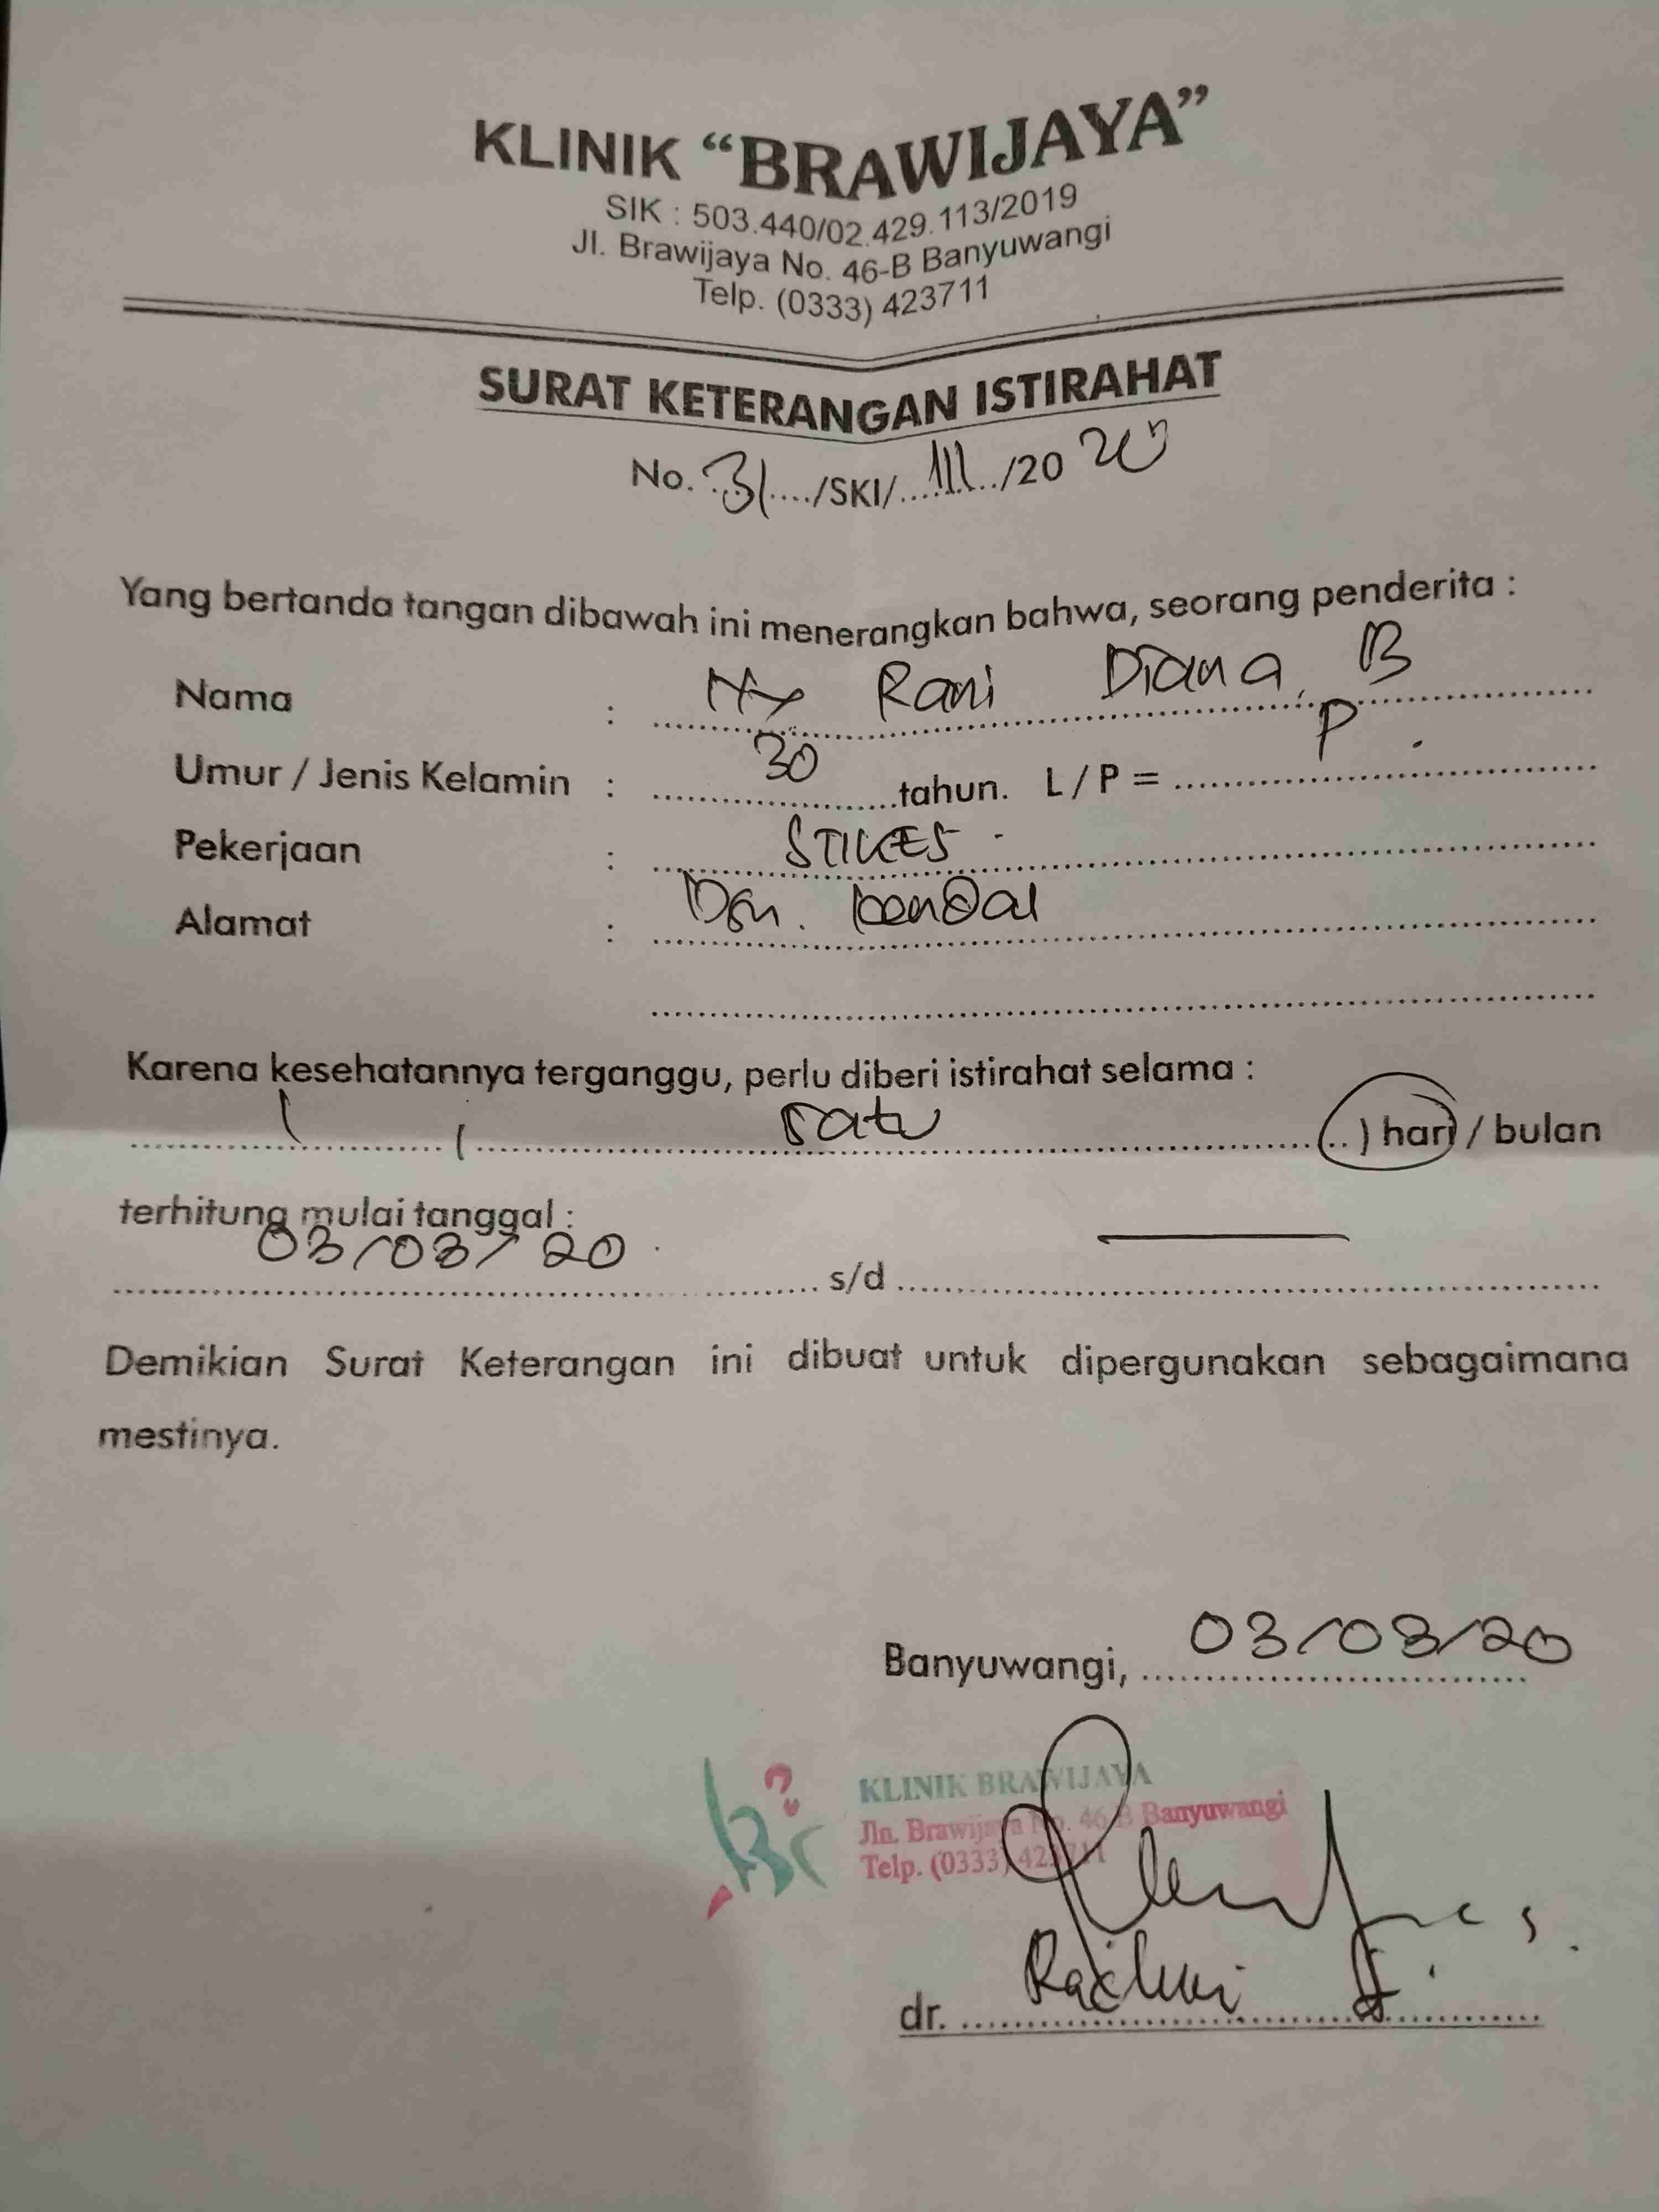 KLINIK “BRAWIJAYA”
SIK : 503.440/02.429.113/2019
Jl. Brawijaya No. 46-B Banyuwangi
Telp. (0333) 423711
SURAT KETERANGAN ISTIRAHAT
No. 31..../SKI/...III.../20 20
Yang bertanda tangan dibawah ini menerangkan bahwa, seorang penderita :
Nama : Ny Rani Diana. B
Umur / Jenis Kelamin : 30 tahun. L / P = P.
Pekerjaan : STIKES.
Alamat : Dsn.
Karena kesehatannya terganggu, perlu diberi istirahat selama :
1 ( satu ) hari / bulan
terhitung mulai tanggal :
03/03/20 s/d —
Demikian Surat Keterangan ini dibuat untuk dipergunakan sebagaimana
mestinya.
Banyuwangi, 03/03/20
KLINIK BRAWIJAYA
Jln. Brawijaya No. 46 B Banyuwangi
Telp. (0333) 423711
dr.